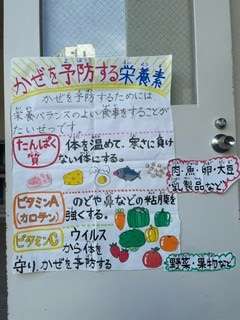 かぜを予防する栄養素
かぜを予防するためには
栄養バランスのよい食事をすることが
たいせつです
たんぱく質
体を温めて、寒さに負け
ない体にする。
肉・魚・卵・大豆
乳製品など
ビタミンA
(カロテン)
のどや鼻などの粘膜を
強くする。
ビタミンC
ウイルス
から体を
守り、かぜを予防する
野菜・果物など